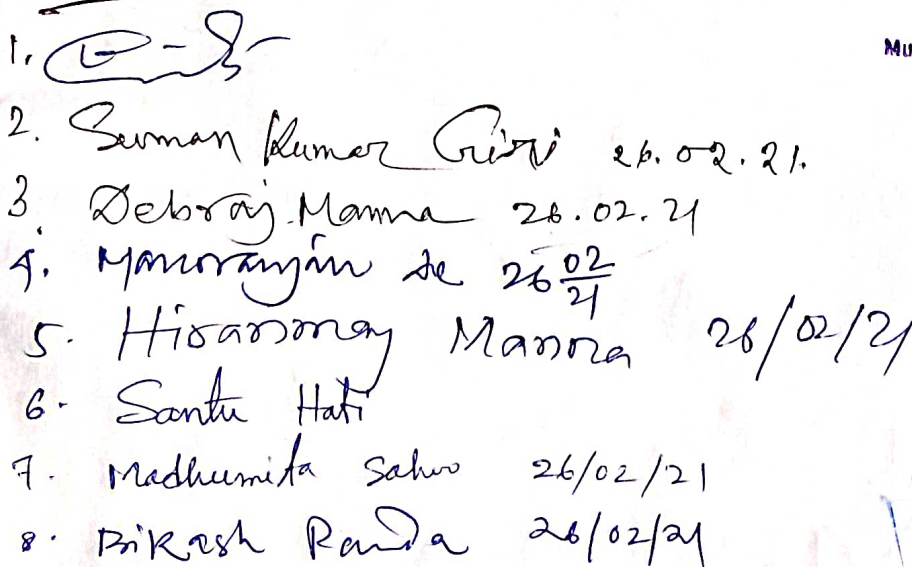 Mu
1.
2. Suman Kumar Giri 26.02.21.
3. Debraj Manna 26.02.21
4. Manoranjan De 26 02/21
5. Hiranmay Manna 26/02/21
6. Santu Hati
7. Madhumita Sahoo 26/02/21
8. Bikash Panda 26/02/21